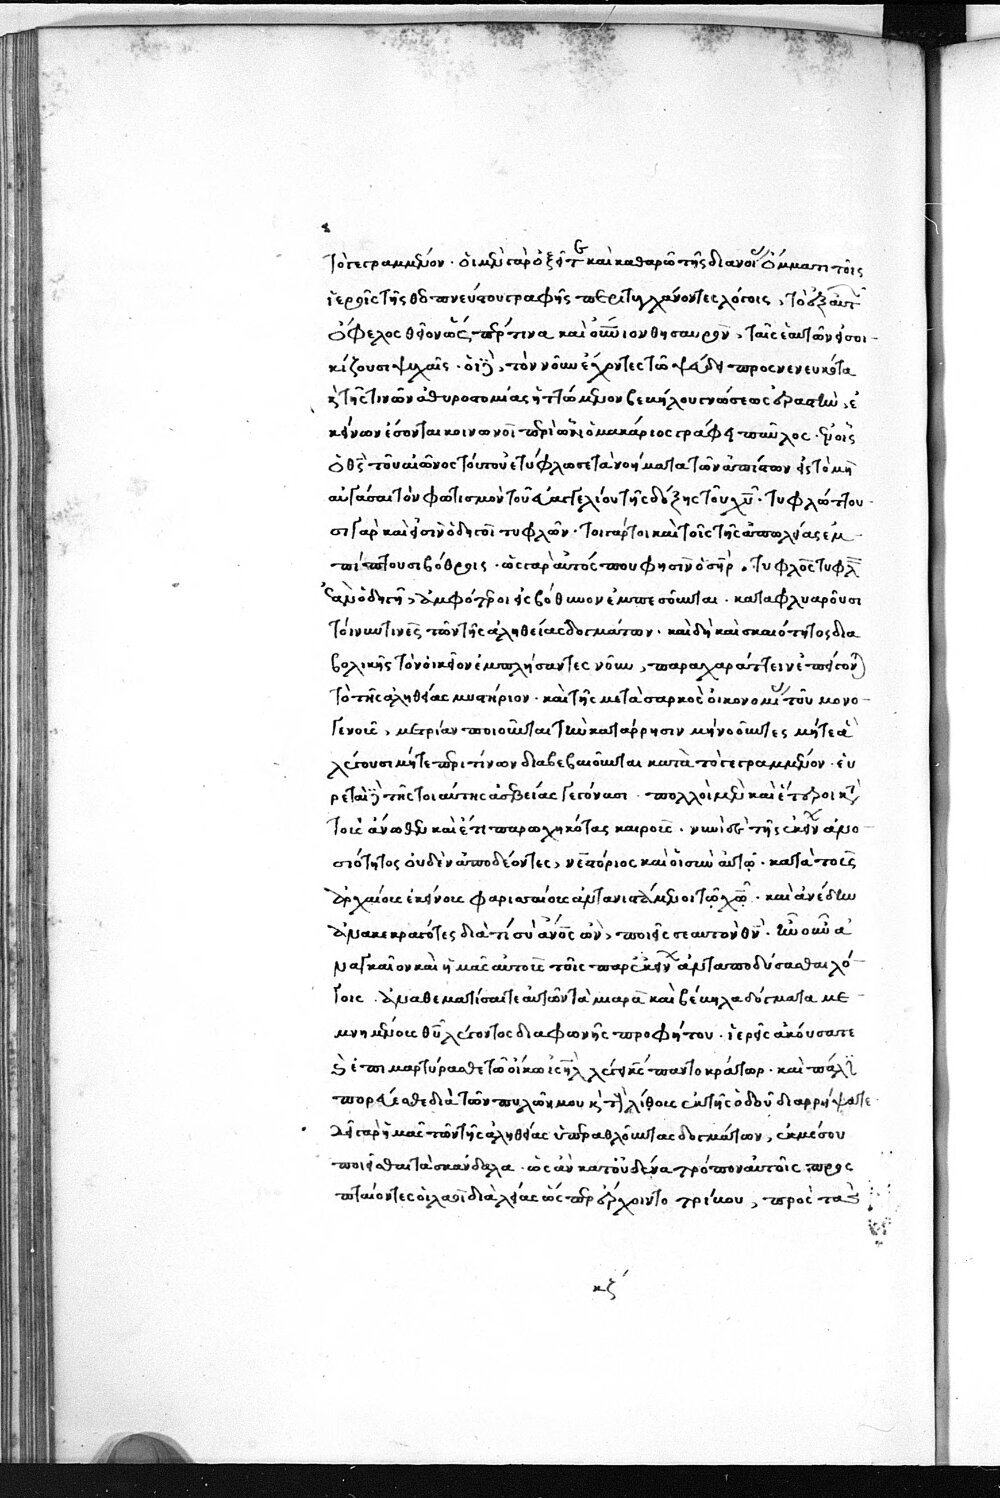 τὸ γεγραμμένον· οἱ μὲν γὰρ ὀξεῖ τε καὶ καθαρῶ τῆς διανοίας ὄμματι τοῖς
ἱεροῖς τῆς θεοπνεύστου γραφῆς περιτυγχάνοντες λόγοις, τὸ ἐξ αὐτῶν
ὄφελος θεῖον ὄντως, πρ τινα καὶ οὐνιον θησαυρὸν, ταῖς ἑαυτῶν εἰσοι-
κίζουσι ψυχαῖς· οἱ δὲ, τὸν νοῦν ἔχοντες τῶ ψεύδει προσνενευκότα
καὶ τῆς τινῶν ἀθυροστομίας ἤγουν μᾶλλον βεβήλου γνώσεως ἐραστὴν, ἐ
κείνων ἔσονται κοινωνοὶ περὶ ὧν ὁ μακάριος γράφει παῦλος· ἐν οἷς
ὁ θς τοῦ αἰῶνος τούτου ἐτύφλωσε τὰ νοήματα τῶν ἀπίστων εἰς τὸ μὴ
αὐγάσαι τὸν φωτισμὸν τοῦ εὐαγγελίου τῆς δόξης τοῦ χυ· τυφλώττου-
σι γὰρ καὶ εἰσὶν ὁδηγοὶ τυφλῶν· τοιγάρτοι καὶ τοῖς τῆς ἀπωλείας ἐμ-
πίπτουσι βόθροις· ὡς γὰρ αὐτός που φησὶν ὁ σηρ. τυφλὸς τυφλὸν
ἐὰν ὁδηγῆ, ἀμφότεροι εἰς βόθυνον ἐμπεσοῦνται· καταφλυαροῦσι
τοίνυν τινὲς τῶν τῆς ἀληθείας δογμάτων· καὶ δὴ καὶ σκαιότητος δια
βολικῆς τὸν οἰκεῖον ἐμπλήσαντες νοῦν, παραχαράττειν ἐπείγονται
τὸ τῆς ἀληθείας μυστήριον· καὶ τῆς μετὰ σαρκὸς οἰκονομίας τοῦ μονο-
γενοῦς, μετρίαν ποιοῦνται τὴν κατάρρησιν μὴ νοοῦντες μήτε ἃ
λέγουσι μήτε περὶ τίνων διαβεβαιοῦνται κατὰ τὸ γεγραμμένον· εὑ
ρεταὶ δὲ τῆς τοιαύτης ἀσεβείας γεγόνασι· πολλοὶ μὲν καὶ ἕτεροι κατὰ
τοὺς ἄνωθεν καὶ ἔτι παρωχηκότας καιρούς· νυνὶ δὲ τῆς ἐκείνων ἀνο-
σιότητος οὐδὲν ἀποδέοντες, νεστόριος καὶ οἱ σὺν αὐτῶ· κατὰ τοὺς
ἀρχαίους ἐκείνους φαρισαίους ἀντανιστάμενοι τῶ χω· καὶ ἀνέδην
ἀνακεκραγότες διὰ τί σὺ ἄνος ὢν, ποιεῖς σεαυτὸν θν· ἦν οὖν ἀ
ναγκαῖον καὶ ἡμᾶς αὐτοὺς τοῖς παρ' ἐκείνων ἀνταποδύσασθαι λό-
γοις· ἀναθεματίσαι τε αὐτῶν τὰ μιαρὰ καὶ βέβηλα δόγματα με-
μνημένους θυ λέγοντος διὰ φωνῆς προφήτου· ἱερεῖς ἀκούσατε
καὶ ἐπιμαρτύρασθε τῶ οἴκω ιηλ λέγει κς παντοκράτωρ· καὶ πάλιν
πορεύεσθε διὰ τῶν πυλῶν μου καὶ τοὺς λίθους ἐκ τῆς ὁδοῦ διαρρήψατε
δεῖ γὰρ ἡμᾶς τῶν τῆς ἀληθείας ὑπεραθλοῦντας δογμάτων, ἐκ μέσου
ποιεῖσθαι τὰ σκάνδαλα· ὡς ἂν κατ' οὐδένα τρόπον αὐτοῖς προς
πταίοντες οἱ λαοὶ διὰ λείας ὡς περ ἔρχοιντο τρίβου, πρὸς τὰς
κζ´